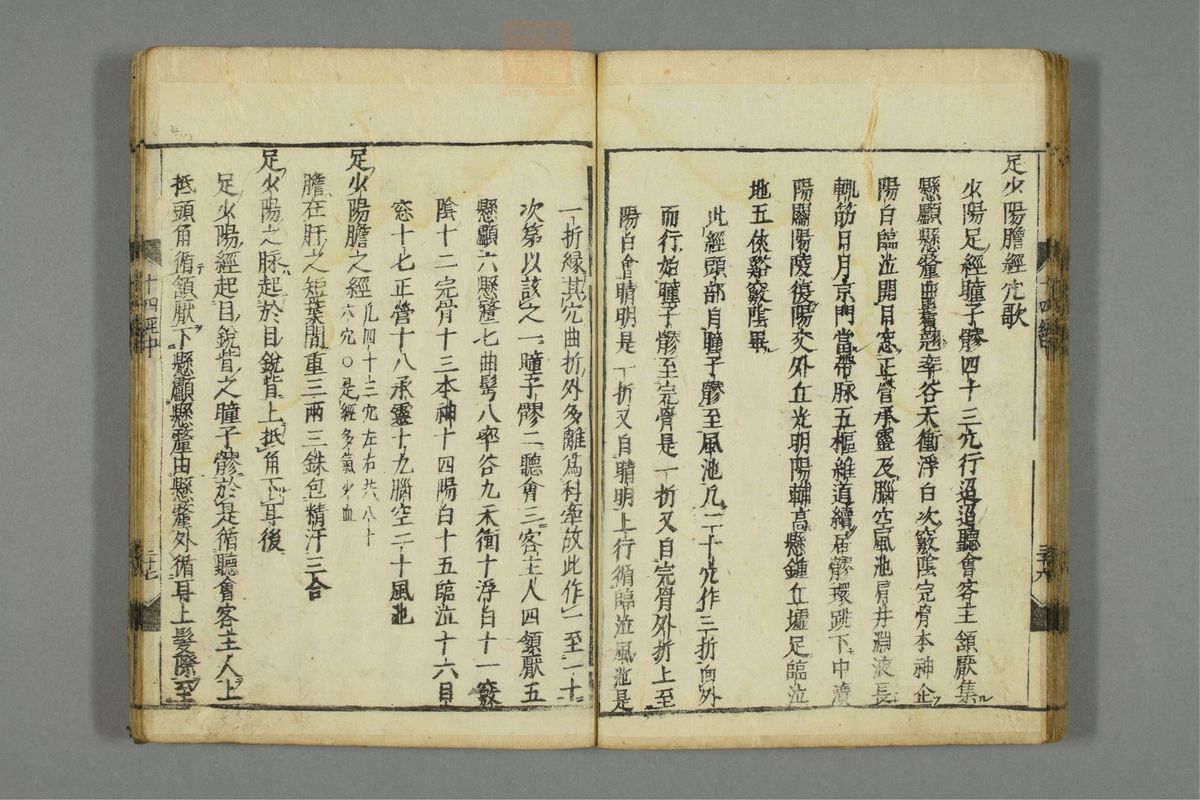 足少陽膽經穴歌
少陽足經瞳子髎四十三穴行迢迢聽會客主頷厭集
懸顱懸釐曲鬢翹率谷天衝浮白次竅陰完骨本神企
陽白臨泣開目窓正營承靈及腦空風池肩井淵液長
輒筋日月京門當帶脉五樞維道續居髎環跳下中瀆
陽關陽陵復陽交外丘光明陽輔高懸鍾丘墟足臨泣
地五俠谿竅陰畢
此經頭部自瞳子髎至風池凡二十穴作三折向外
而行始瞳子髎至完骨是一折又自完骨外折上至
陽白會睛明是一折又自睛明上行循臨泣風池是
一折緣其穴曲折外多離爲科牽故此作一至二十
次第以該之一瞳子髎二聽會三客主人四頷厭五
懸顱六懸釐七曲髩八率谷九天衝十浮白十一竅
陰十二完骨十三本神十四陽白十五臨泣十六目
窓十七正營十八承靈十九腦空二十風池
足少陽膽之經凡四十三穴左右共八十
六穴○是經多氣少血
膽在肝之短葉間重三兩三銖包精汁三合
足少陽之脉起於目銳眥上抵角下耳後
足少陽經起目銳眥之瞳子髎於是循聽會客主人上
抵頭角循頷厭下懸顱懸釐由懸釐外循耳上髮際至
十四經中
三十六
十四經中
三十七